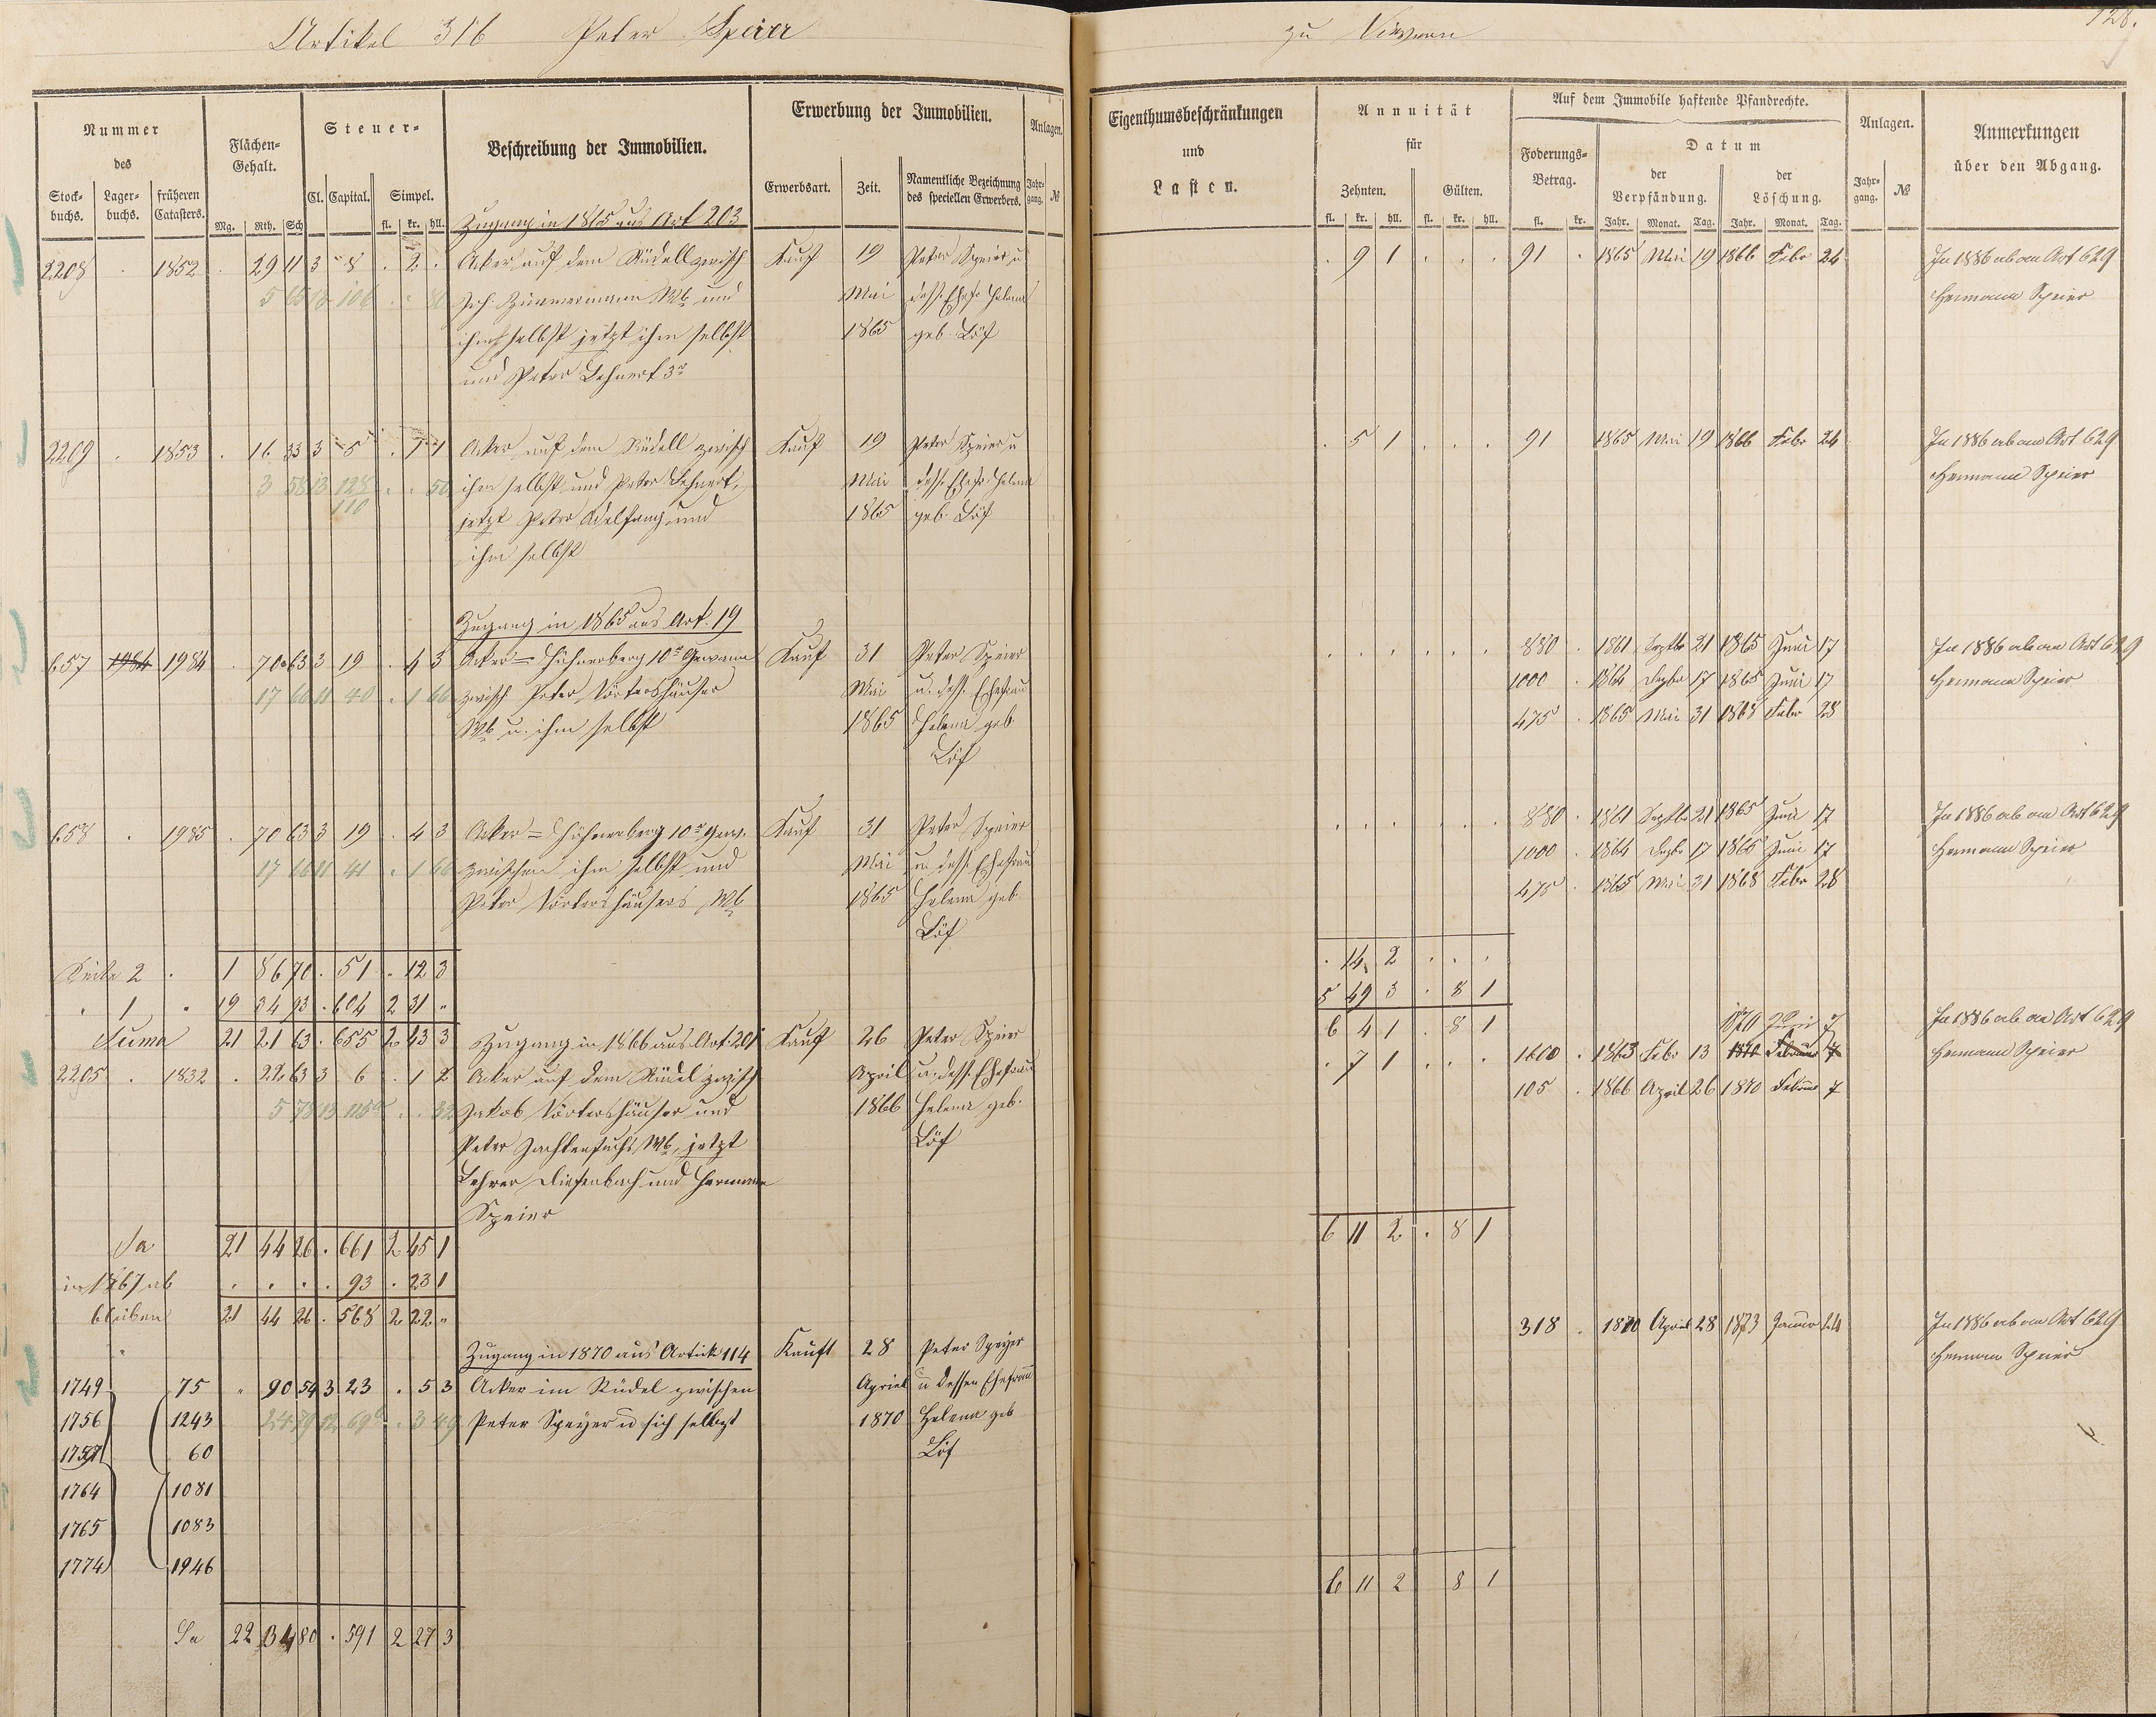 Artikel 316 Peter Speier
zu
128.
Nummer
des
Stock-
buchs.
Lager-
buchs.
früheren
Catasters.
Flächen-
Gehalt.
Mg. Rth. Sch
Steuer-
Cl. Capital. Simpel.
fl. kr. hll.
Beschreibung der Immobilien.
Erwerbung der Immobilien.
Erwerbsart. Zeit.
Namentliche Bezeichnung
des speciellen Erwerbers.
Anlagen.
Jahr-
gang. №
Eigenthumsbeschränkungen
und
Lasten.
Annuität
für
Zehnten. Gülten.
fl. kr. hll. fl. kr. hll.
Auf dem Immobile haftende Pfandrechte.
Foderungs-
Betrag.
fl. kr.
Datum
der
Verpfändung.
Jahr. Monat. Tag.
der
Löschung.
Jahr. Monat. Tag.
Anlagen.
Jahr-
gang. №
Anmerkungen
über den Abgang.
Zugang in 1865 aus Art 203
2208 . 1852 . 29 11 3 8 . 2 . Acker auf dem Rüdell zwisch Kauf 19 Peter Speier u . 9 1 . . . 91 . 1865 Mai 19 1866 Febr 24 In 1886 ab an Art 629
Joh. Zimmermann Wb und Mai dess. Ehefr Helena Hermann Speier
ihm selbst jetzt ihm selbst 1865 geb. Löf
und Peter Lehnert 3r
2209 . 1853 . 16 33 3 5 . 1 1 Acker auf dem Rüdell zwisch Kauf 19 Peter Speier u . 5 1 . . . 91 1865 Mai 19 1866 Febr 24 In 1886 ab an Art 629
3 58 13 128 . . 50 ihm selbst und Peter Lehnert, Mai dess. Ehefr Helena Hermann Speier
110 jetzt Peter Adelfang und 1865 geb. Löf
ihm selbst
Zugang in 1865 aus Art. 19
657 1984 1984 . 70 63 3 19 . 4 3 Acker = Hühnerberg 10r Gewann Kauf 31 Peter Speier . . . . . . 880 . 1861 Septbr 21 1865 Juni 17 In 1886 ab an Art 629
17 66 11 40 . 1 60 zwisch Peter Börtershäuser Mai u. dess. Ehefrau 1000 . 1864 Dezbr 17 1865 Juni 17 Hermann Speier
Wb u. ihm selbst 1865 Helena geb 475 . 1865 Mai 31 1868 Febr 28
Löf
658 . 1985 . 70 63 3 19 . 4 3 Acker = Hühnerberg 10r Gew. Kauf 31 Peter Speier . . . . . . 880 . 1861 Septbr 21 1865 Juni 17 In 1886 ab an Art 629
17 66 11 41 . 1 60 zwischen ihm selbst und Mai u. dess. Ehefrau 1000 . 1864 Dezbr 17 1865 Juni 17 Hermann Speier
Peter Börtershäusers Wb 1865 Helena geb 475 . 1865 Mai 31 1868 Febr 28
Löf
Seite 2 . 1 86 70 . 51 . 12 3 . 14 2 . . .
" 1 " 19 34 93 . 604 2 31 " 5 49 3 . 8 1
Suma 21 21 63 . 655 2 43 3 Zugang in 1866 aus Art. 201 Kauf 26 Peter Speier 6 4 1 . 8 1 1870 7 In 1886 ab an Art 629
2205 . 1832 . 22 63 3 6 . 1 2 Acker auf dem Rüdel zwisch April u. dess. Ehefrau . 7 1 . . . 1600 . 1863 Febr 13 1870 Februar 7 Hermann Speier
Jakob Börtershäuser und 1866 Helena geb. 105 . 1866 April 26 1870 Februar 7
Peter Wb, jetzt Löf
Lehrer Diefenbach und Hermann
Speier
Sa 21 44 26 . 661 2 45 1 6 11 2 . 8 1
in 1867 ab . . . . 93 . 23 1
bleiben 21 44 26 . 568 2 22 "
Zugang in 1870 aus Artick 114 Kauft 28 Peter Speyer 318 . 1870 April 28 1873 Januar 24 In 1886 ab an Art 629
1749 75 " 90 54 3 23 . 5 3 Acker im Rüdel zwischen Apriel u dessen Ehefrau Hermann Speier
1756 1243 Peter Speyer u sich selbst 1870 Helena geb
1757 60 Löf
1764 1081
1765 1083
1774 1946
6 11 2 8 1
Sa 22 34 80 . 591 2 27 3